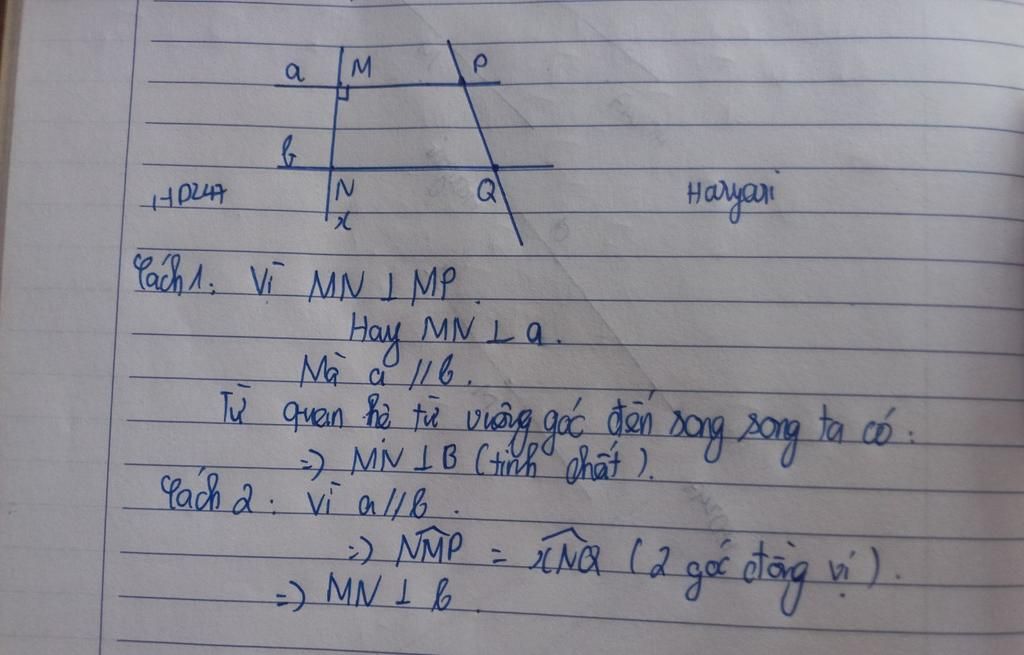 a M P
b N Q
x
HD247 Haryari
Cách 1: Vì MN ⊥ MP.
Hay MN ⊥ a.
Mà a // b.
Từ quan hệ từ vuông góc đến song song ta có:
=> MN ⊥ B (tính chất).
Cách 2: Vì a // b.
=> \widehat{NMP} = \widehat{xNQ} (2 góc đồng vị).
=> MN ⊥ b.